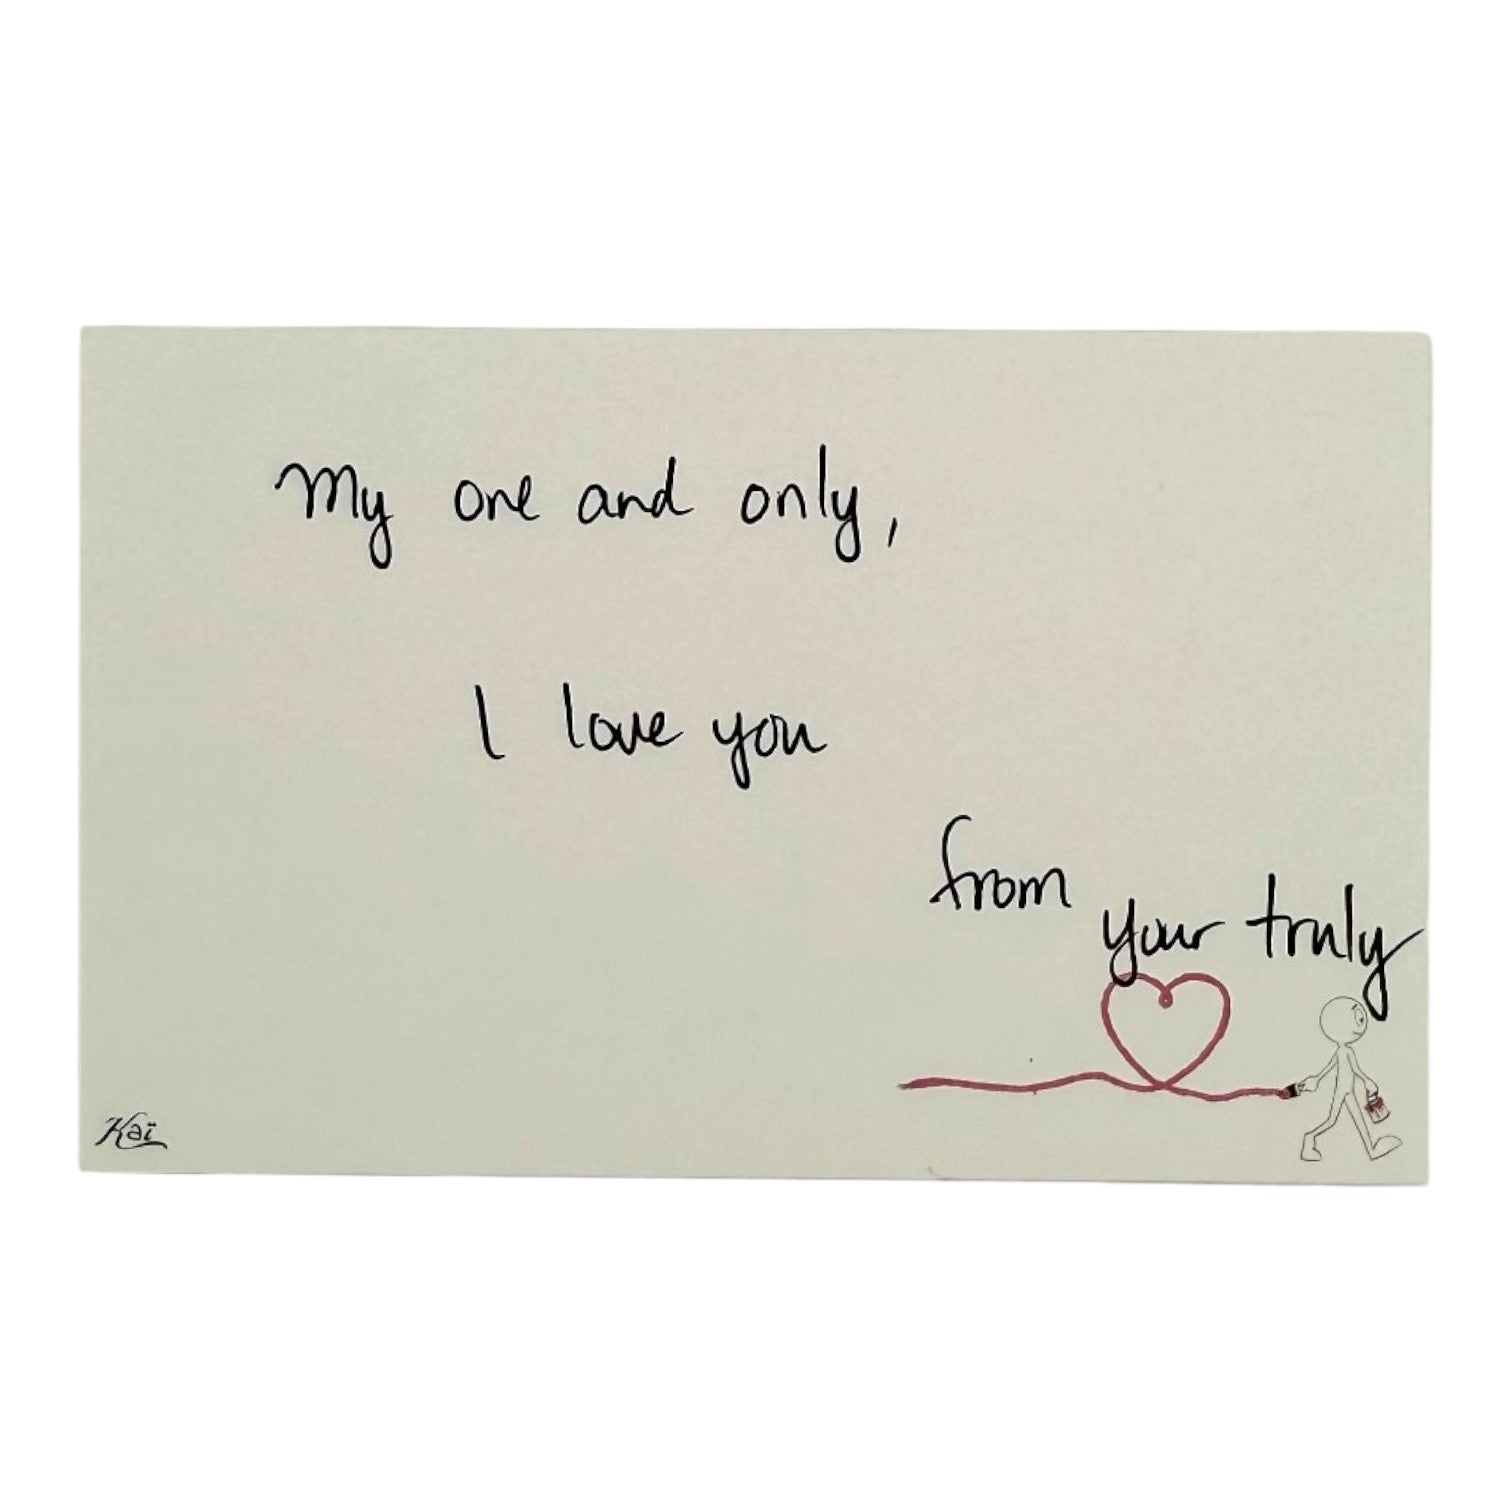 My one and only,
I love you
from your truly
Kai